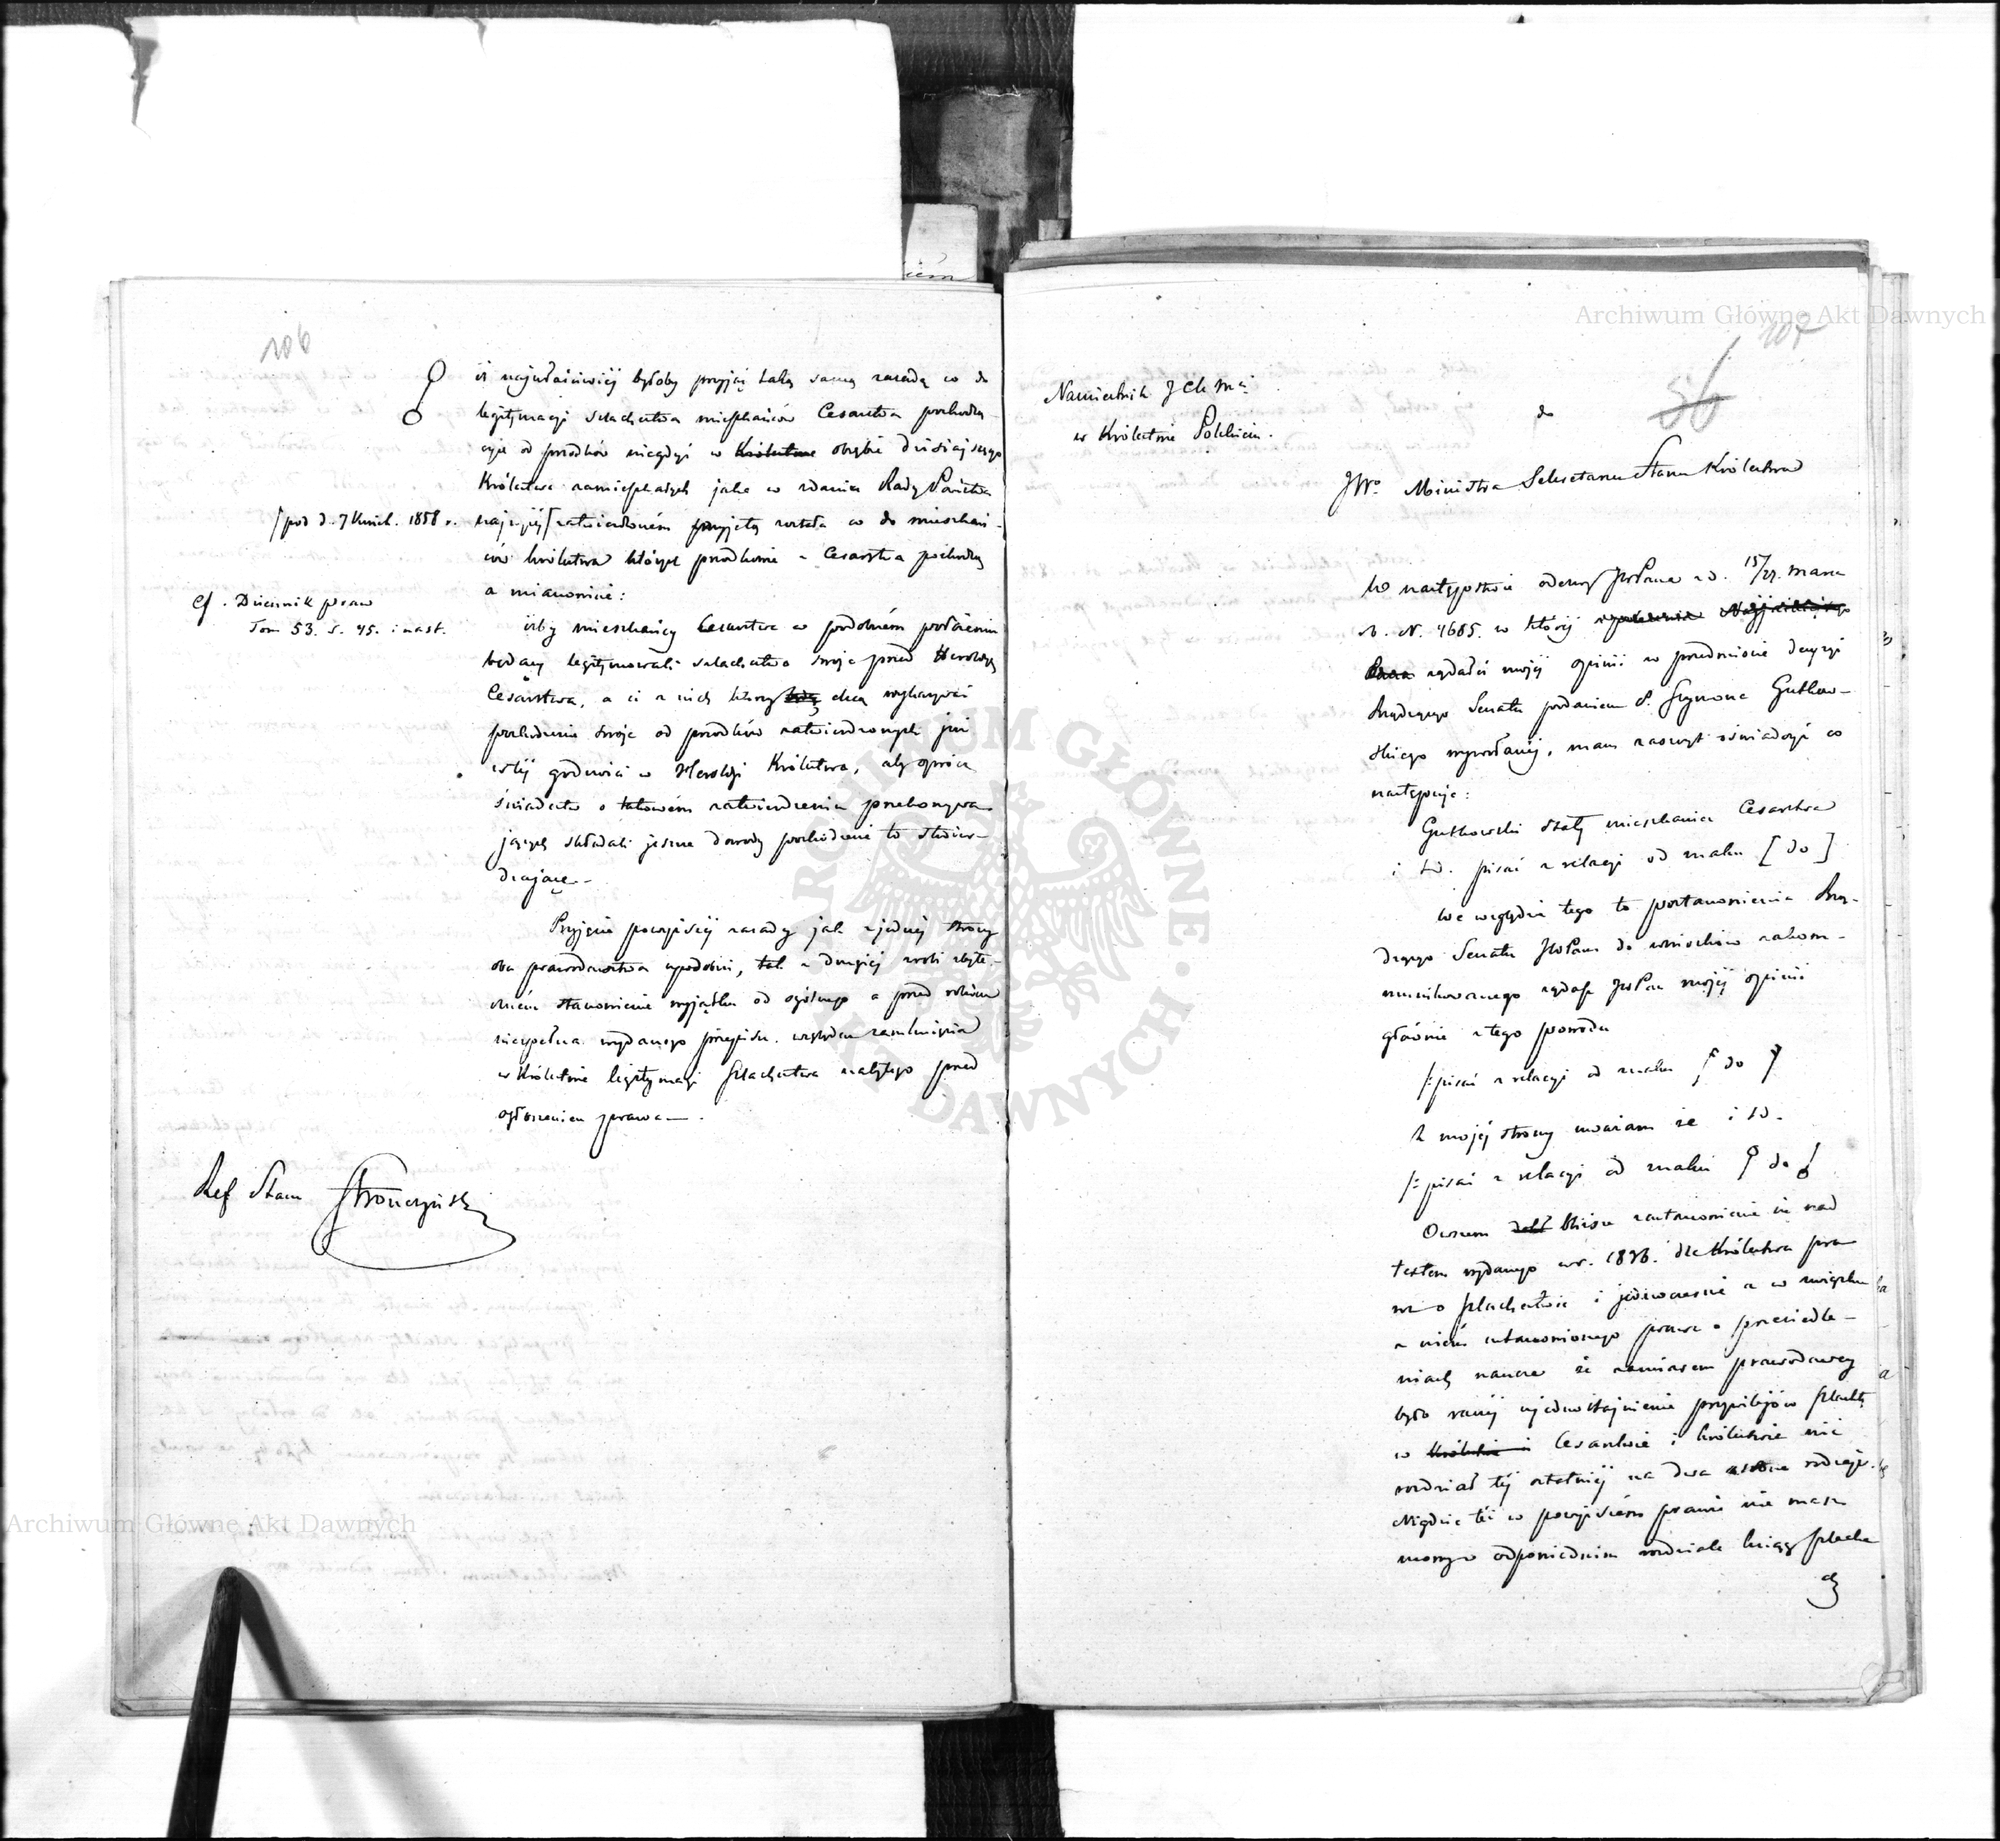 106
iż najwłaściwiéj byłoby przyjąć taką samą zasadę co do
legitymacyi szlachectwa mieszkańców Cesarstwa pochodzą-
cych od przodków niegdyś w Królestwie obrębie dzisiejszego
Królestwa zamieszkałych jaka w zdaniu Rady Państwa
pod d. 7 Kwiet. 1858 r.
najwyżéj zatwierdzoném przyjętą została co do mieszkań-
ców Królestwa których przodkowie z Cesarstwa pochodzą
a mianowicie:
cf. Dziennik praw
Tom 53. s. 45. i nast.
iżby mieszkańcy Cesarstwa w podobném położeniu
będący legitymowali szlachectwo swoje przed Heroldyą
Cesarstwa, a ci z nich którzy chcą wykazywać
pochodzenie swoje od przodków zatwierdzonych już
w téj godności w Heroldyi Królestwa, aby oprócz
świadectw o takowém zatwierdzeniu przekonywa-
jących składali jeszcze dowody pochodzenie to stwier-
dzające.
Przyjęcie powyższéj zasady jak z jednéj strony
oba prawodawstwa upodobni, tak z drugiéj zrobi zbyte-
czném stanowienie wyjątku od ogólnego a przed rokiem
niespełna wydanego przepisu względem zamknięcia
w Królestwie legitymacyi szlachectwa nabytego przed
ogłoszeniem prawa.
Ref Stanu Stronczyński
107
56
Namiestnik JCK Mci
w Królestwie Polskiem.
do
JWo Ministra Sekretarza Stanu Królestwa
W następstwie odezwy JWPana z d. 15/27 marca
r. b. N. 4685. w któréj
żądałeś mojéj opinii w przedmiocie decyzyi
Rządzącego Senatu podaniem P. Szymona Gutkow-
skiego wywołanéj, mam zaszczyt oświadczyć co
następuje:
Gutkowski stały mieszkaniec Cesarstwa
i t.d. pisać z relacyi od znaku [ do ]
We względzie tego to postanowienia Rzą-
dzącego Senatu JWPanu do wniosków zakom-
munikowanego żądasz JWPan mojéj opinii
głównie z tego powodu
/: pisać z relacyi od znaku do
Z mojéj strony uważam że i t.d.
/: pisać z relacyi od znaku do
Owszem bliższe zastanowienie się nad
textem wydanego w r. 1836. dla Królestwa pra-
wa o szlachectwie i jednocześnie a w związku
z niém ustanowionego prawa o przesiedle-
niach naucza że zamiarem prawodawcy
było raczéj ujednostajnienie przywilejów szlachty
w Cesarstwie i Królestwie niż
rozdział téj ostatniéj na dwa rodzaje.
Nigdzie téż w powyższém prawie nie masz
mowy o odpowiednim rozdziale ksiąg szlache